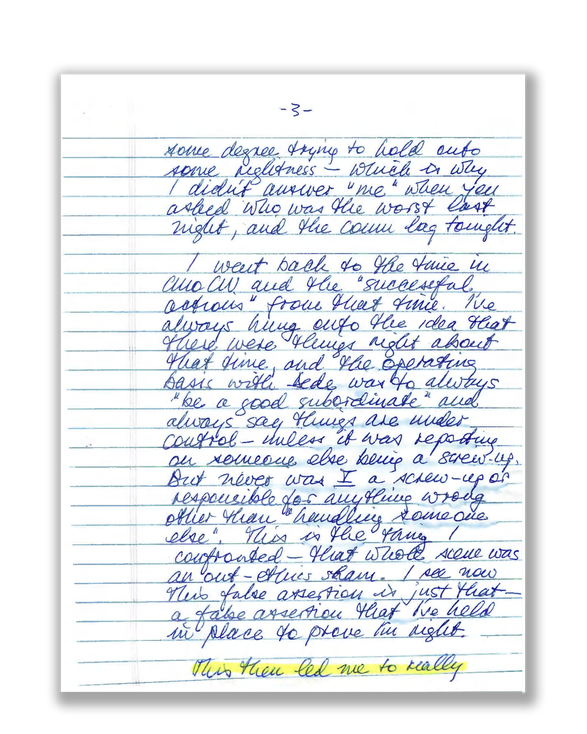 -3-
some degree trying to hold onto
some rightness - which is why
I didn't answer "me" when you
asked who was the worst last
night, and the comm lag tonight.
I went back to the time in
CMO CW and the "successful
actions" from that time. I've
always hung onto the idea that
there were things right about
that time, and the operating
basis with was to always
"be a good subordinate" and
always say things are under
control - unless it was reporting
on someone else being a screw-up.
But never was I a screw-up or
responsible for anything wrong
other than "handling someone
else". This is the thing I
confronted - that whole scene was
an out-ethics sham. I see now
this false assertion is just that -
a false assertion that I've held
in place to prove I'm right.
This then led me to really